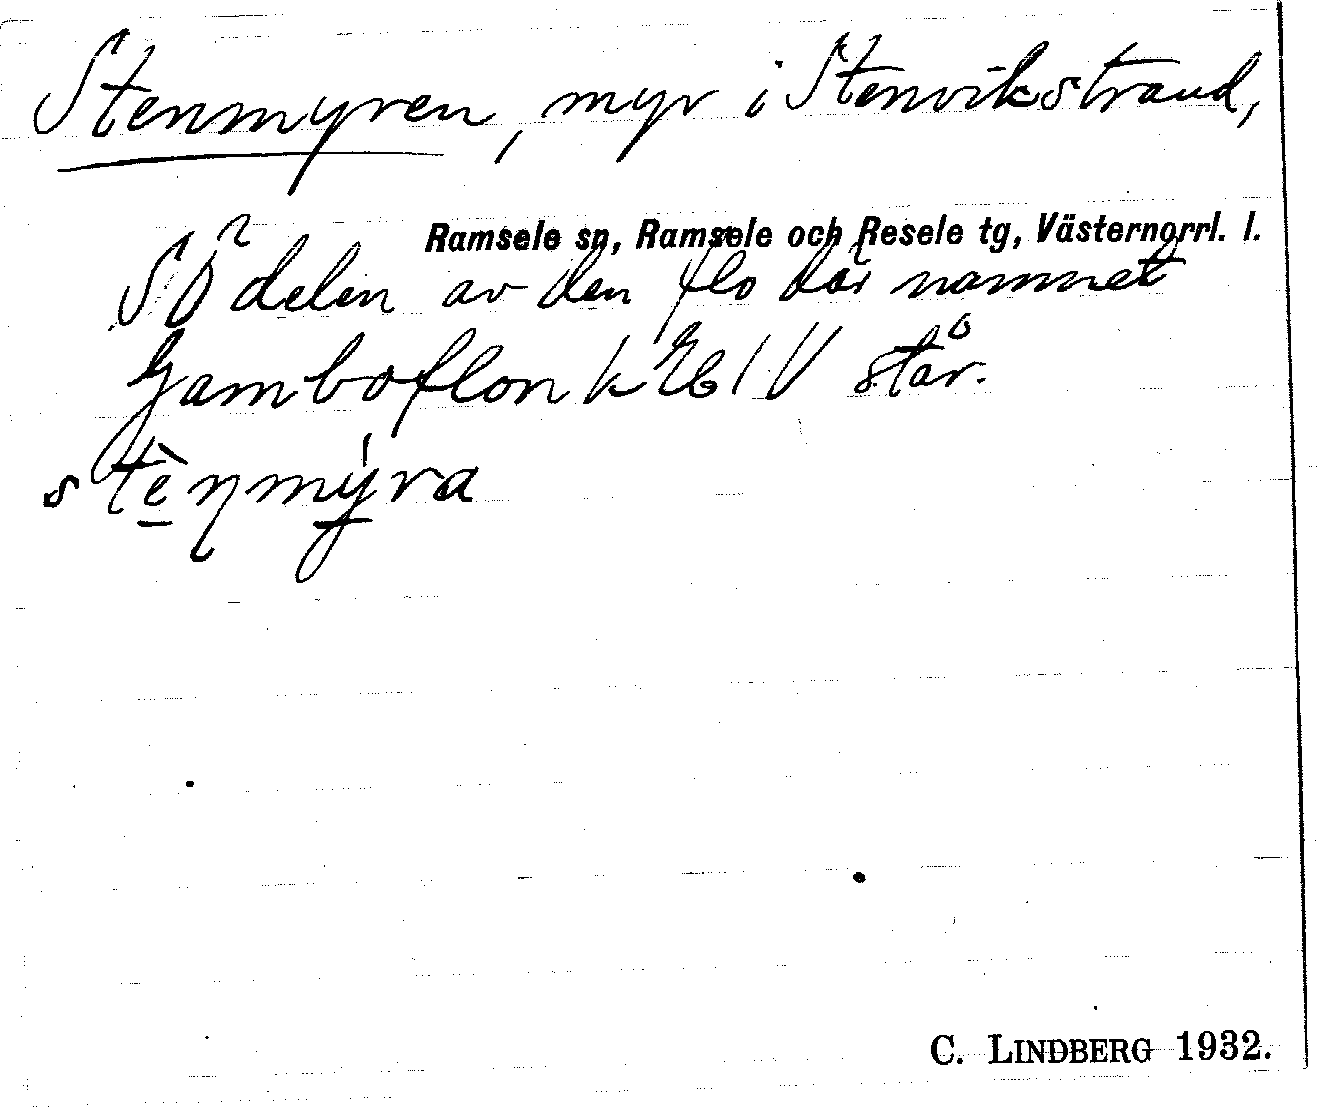 Stenmyren, myr i Stenvikstrand,
Ramsele sn, Ramsele och Resele tg, Västernorrl. l.
SÖ delen av den flo där namnet
Gamboflon k EIV står.
stènmy̍ra
C. LINDBERG 1932.